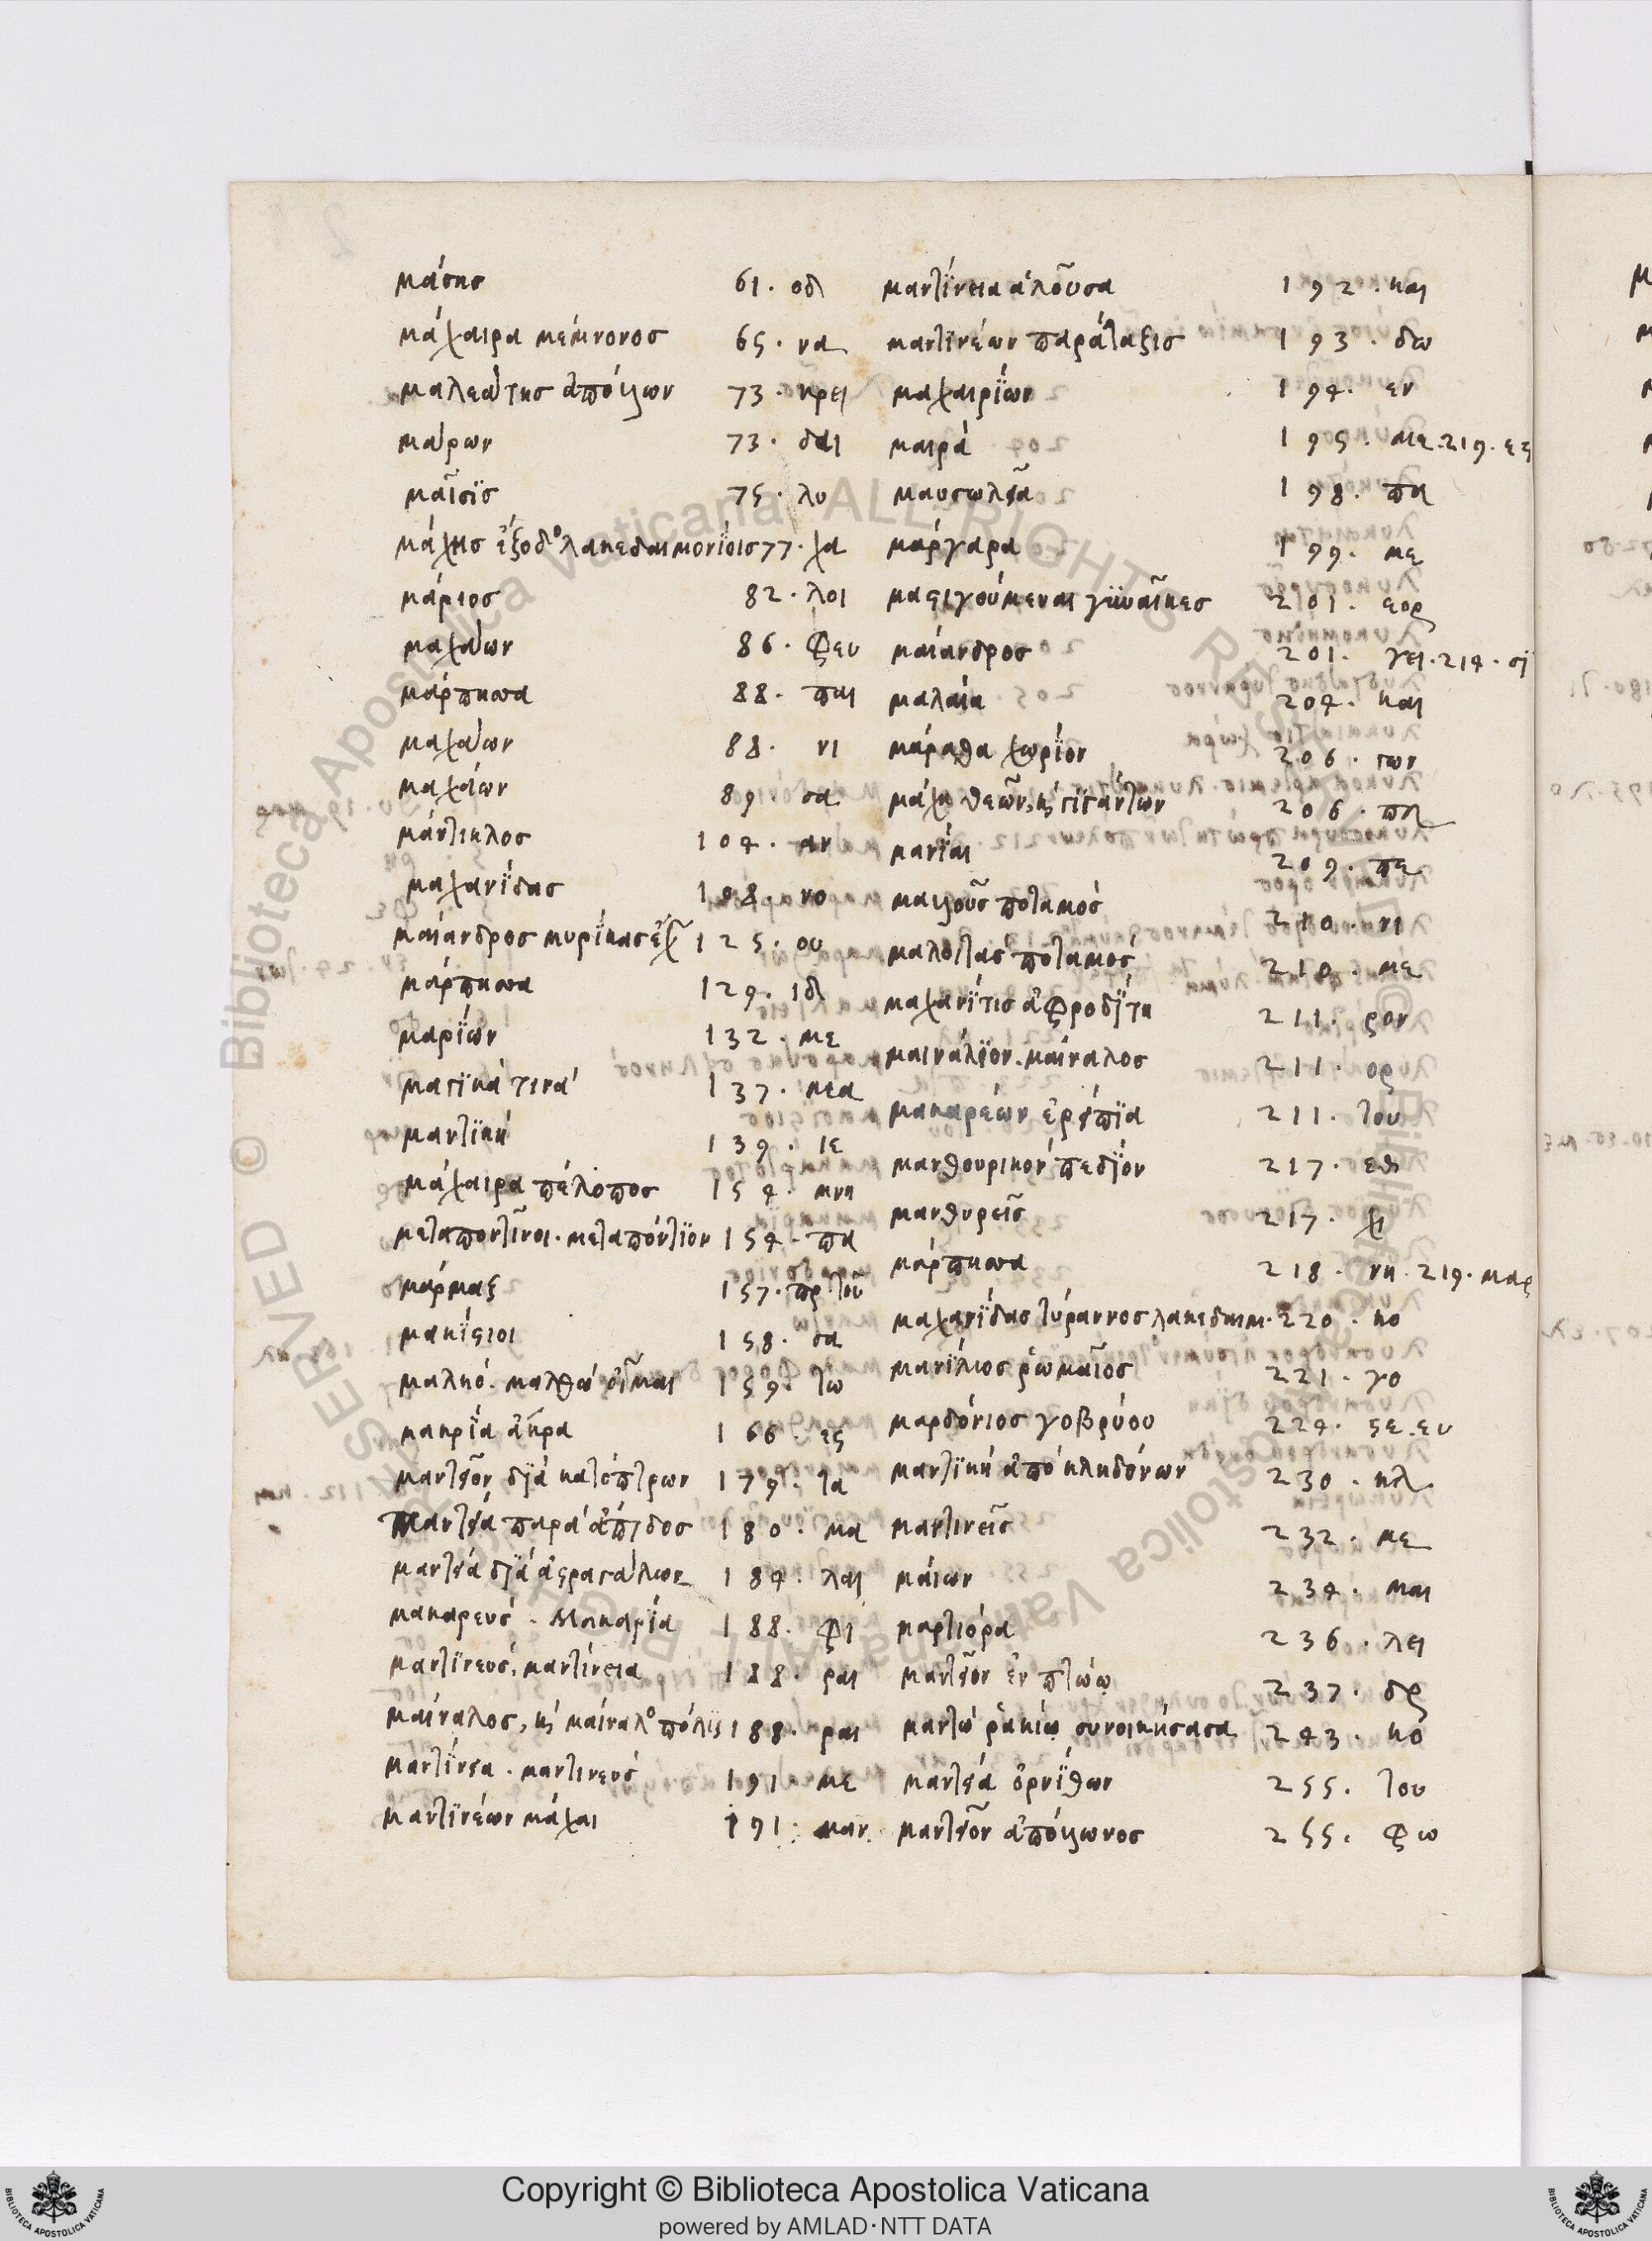 μάσης 61. οδ
μάχαιρα μέμνονος 65. να
μαλεάτης ἀπόλλων 73. κρει
μάρων 73. δαι
μαῖσις 75. λυ
μάχης ἔξοδος λακεδαιμονίοις 77. χα
μάριος 82. λοι
μαχάων 86. φευ
μάρπησσα 88. παι
μαχάων 88. νι
μαχάων 89. σα
μάντικλος 104. αν
μαχανίδας 108. νο
μαίανδρος μυρίκας ἔχει 125. ου
μάρπησσα 129. ιδ
μαρίων 132. με
μαγικά τινά 137. μεα
μαντική 139. ιε
μάχαιρα πέλοπος 154. μνη
μεταποντῖνοι. μεταπόντιον 154. πα
μάρμαξ 157. πρ του
μακίστιοι 158. σα
μαλκό. μαλθώ οἶμαι 159. τω
μακρία ἄκρα 166. ες
μαντεῖον διά κατόπτρων 179. τα
μαντεία παρά ἄσπιδος 180. μα
μαντεία διά ἀστραγάλων 184. λαι
μακαρεύς. Μακαρία 188. φι
μαντινεύς. μαντίνεια 188. ραι
μαίναλος, καὶ μαίναλος πόλις 188. ραι
μαντίνεια. μαντινεύς 191. με
μαντινέων μάχαι 191. μαν
μαντίνεια ἁλοῦσα 192. και
μαντινέων παράταξις 193. δω
μαχαιρίων 194. εν
μαιρά 195. με. 219. εξ
μαυσωλεῖα 198. πα
μάργαρα 199. με
μαστιγούμεναι γυναῖκες 201. εορ
μαίανδρος 201. γει. 214. σι
μαλαία 204. και
μάραθα χωρίον 206. των
μάχη θεῶν, καὶ γιγάντων 206. πλ
μανίαι 209. πε
μαλλοῦς ποταμός 210. νι
μαλοίτας ποταμός 210. με
μαχανῖτις ἀφροδίτη 211. ρον
μαινάλιον. μαίναλος 211. ορ
μακαρέων ἐρείπια 211. του
μανθουρικόν πεδίον 217. εθ
μανθυρεῖς 217. χ
μάρπησσα 218. νη. 219. μαρ
μαχανίδας τύραννος λακεδαιμ. 220. κο
μανίλιος ῥωμαῖος 221. γο
μαρδόνιος γοβρύου 224. σε. ευ
μαντική ἀπό κληδόνων 230. κλ
μαντινεῖς 232. με
μάχων 234. μαι
μαρτιόρα 236. λει
μαντεῖον ἐν πτώῳ 237. δρ
μαντώ ῥακίῳ συνοικήσασα 243. κο
μαντεία ὀρνίθων 255. του
μαντεῖον ἀπόλλωνος 255. φω
Copyright © Biblioteca Apostolica Vaticana
powered by AMLAD·NTT DATA